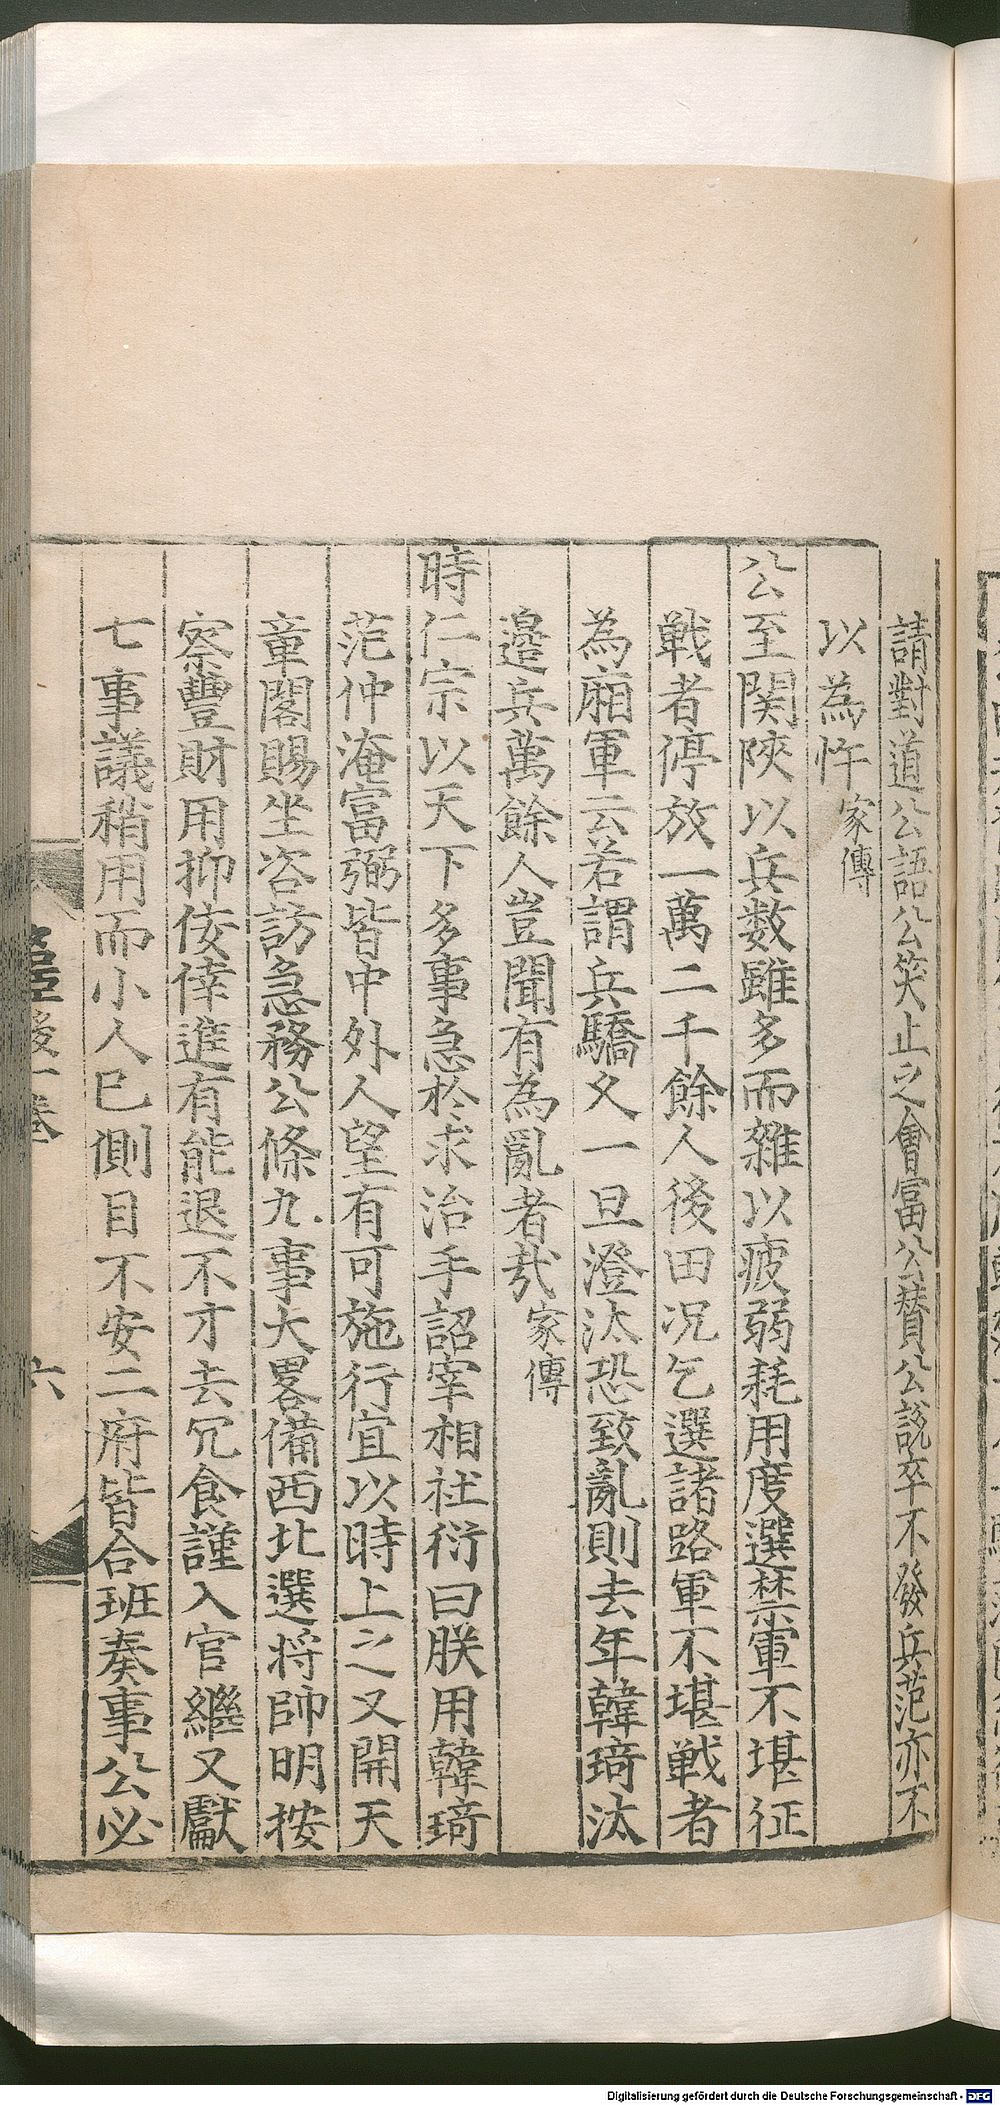 請對道公語公笑止之會富公賛公說卒不發兵范亦不
以為忤家傳
公至関陜以兵数雖多而雜以疲弱耗用度選禁軍不堪征
戦者停放一萬二千餘人後田况乞選諸路軍不堪戦者
為廂軍云若謂兵驕久一旦澄汰恐致亂則去年韓琦汰
邉兵萬餘人豈聞有為亂者㢤家傳
時仁宗以天下多事急於求治手詔宰相杜衍曰朕用韓琦
范仲淹富弼皆中外人望有可施行宜以時上之又開天
章閣賜坐咨訪急務公條九事大畧備西北選将帥明按
察豐財用抑侥倖進有能退不才去冗食謹入官繼又獻
七事議稍用而小人巳側目不安二府皆合班奏事公必
臣後一巻
六
Digitalisierung gefördert durch die Deutsche Forschungsgemeinschaft - DFG